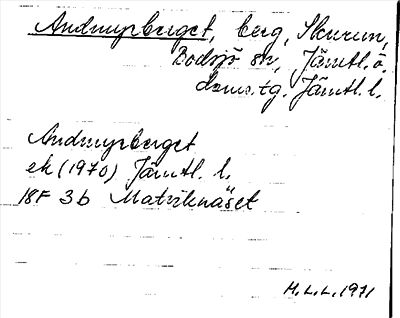 Andmyrberget, berg, Skurun,
Bodsjö sn, Jämtl. ö.
doms.tg. Jämtl. l.
Andmyrberget
ek (1970) Jämtl. l.
18F 3b Matriknäset
H.L.L. 1971